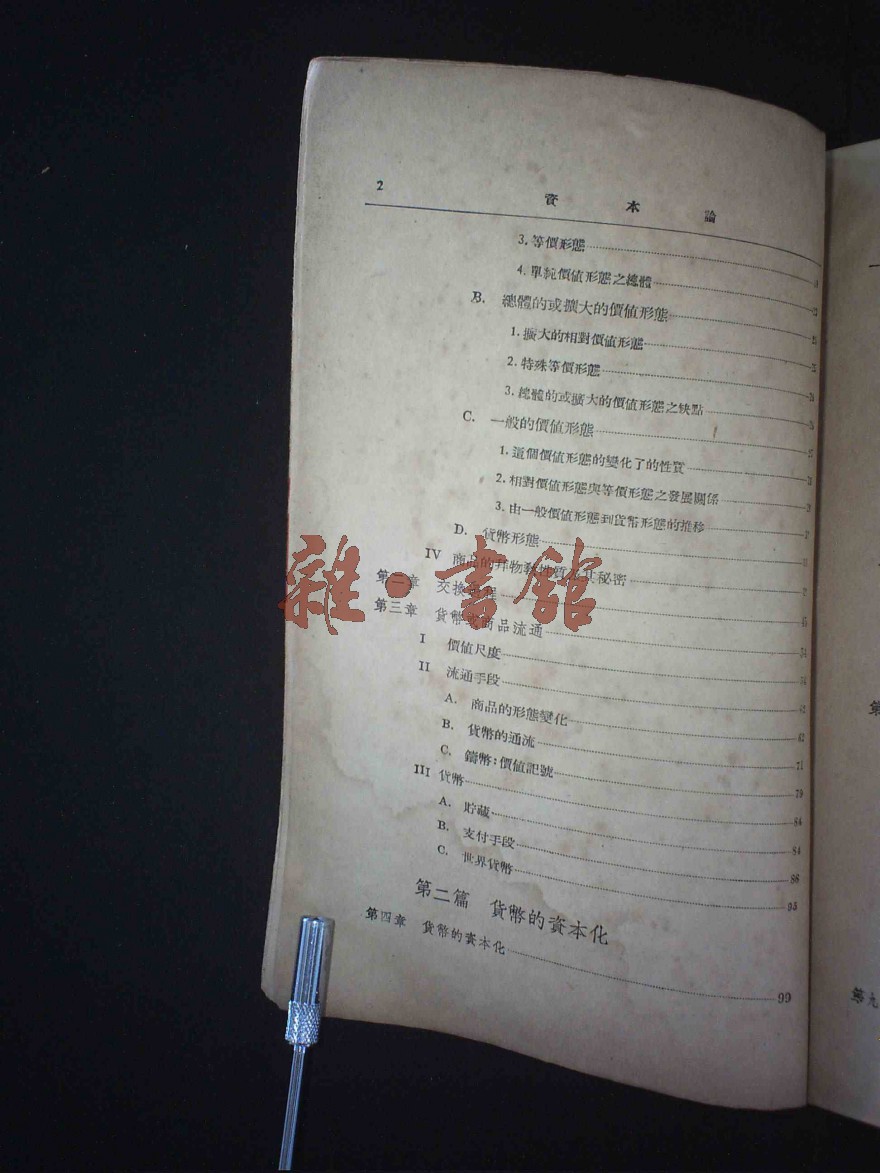 2 資本論
3. 等價形態
4. 單純價值形態之總體
B. 總體的或擴大的價值形態
1. 擴大的相對價值形態
2. 特殊等價形態
3. 總體的或擴大的價值形態之缺點
C. 一般的價值形態
1. 這個價值形態的變化了的性質
2. 相對價值形態與等價形態之發展關係
3. 由一般價值形態到貨幣形態的推移
D. 貨幣形態
IV 商品的拜物教性質及其秘密
第二章 交換過程
第三章 貨幣或商品流通
I 價值尺度
II 流通手段
A. 商品的形態變化
B. 貨幣的通流 71
C. 鑄幣:價值記號 79
III 貨幣 84
A. 貯藏 84
B. 支付手段 88
C. 世界貨幣 95
第二篇 貨幣的資本化
第四章 貨幣的資本化 99
雜·書館
第九